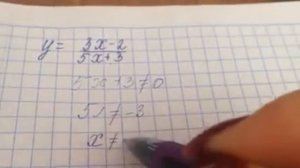 y = 3x-2/5x+3
5x+3≠0
5x≠-3
x≠